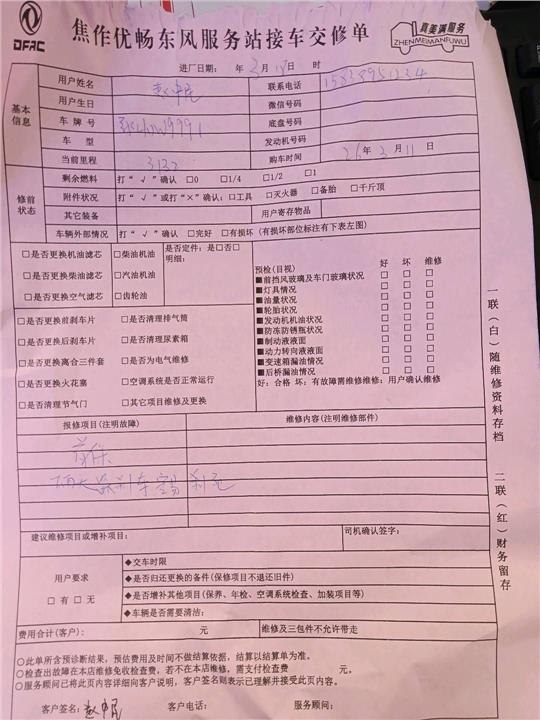 DFAC
焦作优畅东风服务站接车交修单
真美满服务
ZHENMEIMANFUWU
进厂日期： 年 3月 18日 时
基本信息
用户姓名 联系电话
用户生日 微信号码
车牌号 底盘号码
车型 发动机号码
当前里程 3132 购车时间 26年 3月 11日
修前状态
剩余燃料 打“√”确认 □0 □1/4 □1/2 □1
附件状况 打“√”或打“×”确认：□工具 □灭火器 □备胎 □千斤顶
其它装备 用户寄存物品
车辆外部情况 打“√”确认 □完好 □有损坏（有损坏部位标注有下表左图）
□是否更换机油滤芯 □柴油机油 是否定件：是□否□
□是否更换柴油滤芯 □汽油机油 明细：
□是否更换空气滤芯 □齿轮油
预检（目视） 好 坏 维修
■前挡风玻璃及车门玻璃状况 □ □ □
■灯具情况 □ □ □
■油量状况 □ □ □
■轮胎状况 □ □ □
■发动机机油状况 □ □ □
■防冻防锈瓶状况 □ □ □
■制动液液面 □ □ □
■动力转向液液面 □ □ □
■变速箱漏油情况 □ □ □
■后桥漏油情况 □ □ □
好：合格 坏：有故障需维修维修：用户确认维修
□是否更换前刹车片 □是否清理排气筒
□是否更换后刹车片 □是否清理尿素箱
□是否更换离合三件套 □是否为电气维修
□是否更换火花塞 □空调系统是否正常运行
□是否清理节气门 □其它项目维修及更换
报修项目（注明故障） 维修内容（注明维修部件）
首保
雨天踩刹车容易刹死
建议维修项目或增补项目： 司机确认签字：
用户要求
□有 □无
◆交车时限
◆是否归还更换的备件（保修项目不退还旧件）
◆是否增补其他项目（保养、年检、空调系统检查、加装项目等）
◆车辆是否需要清洁：
费用合计（客户）： 元 维修及三包件不允许带走
○此单所含预诊断结果，预估费用及时间不做结算依据，结算以结算单为准。
○检查出故障在本店维修免收检查费，若不在本店维修，需支付检查费 元。
○服务顾问已将此页内容详细向客户说明，客户签名则表示已理解并接受此页内容。
客户签名： 客户电话： 服务顾问：
一联（白）随维修资料存档
二联（红）财务留存